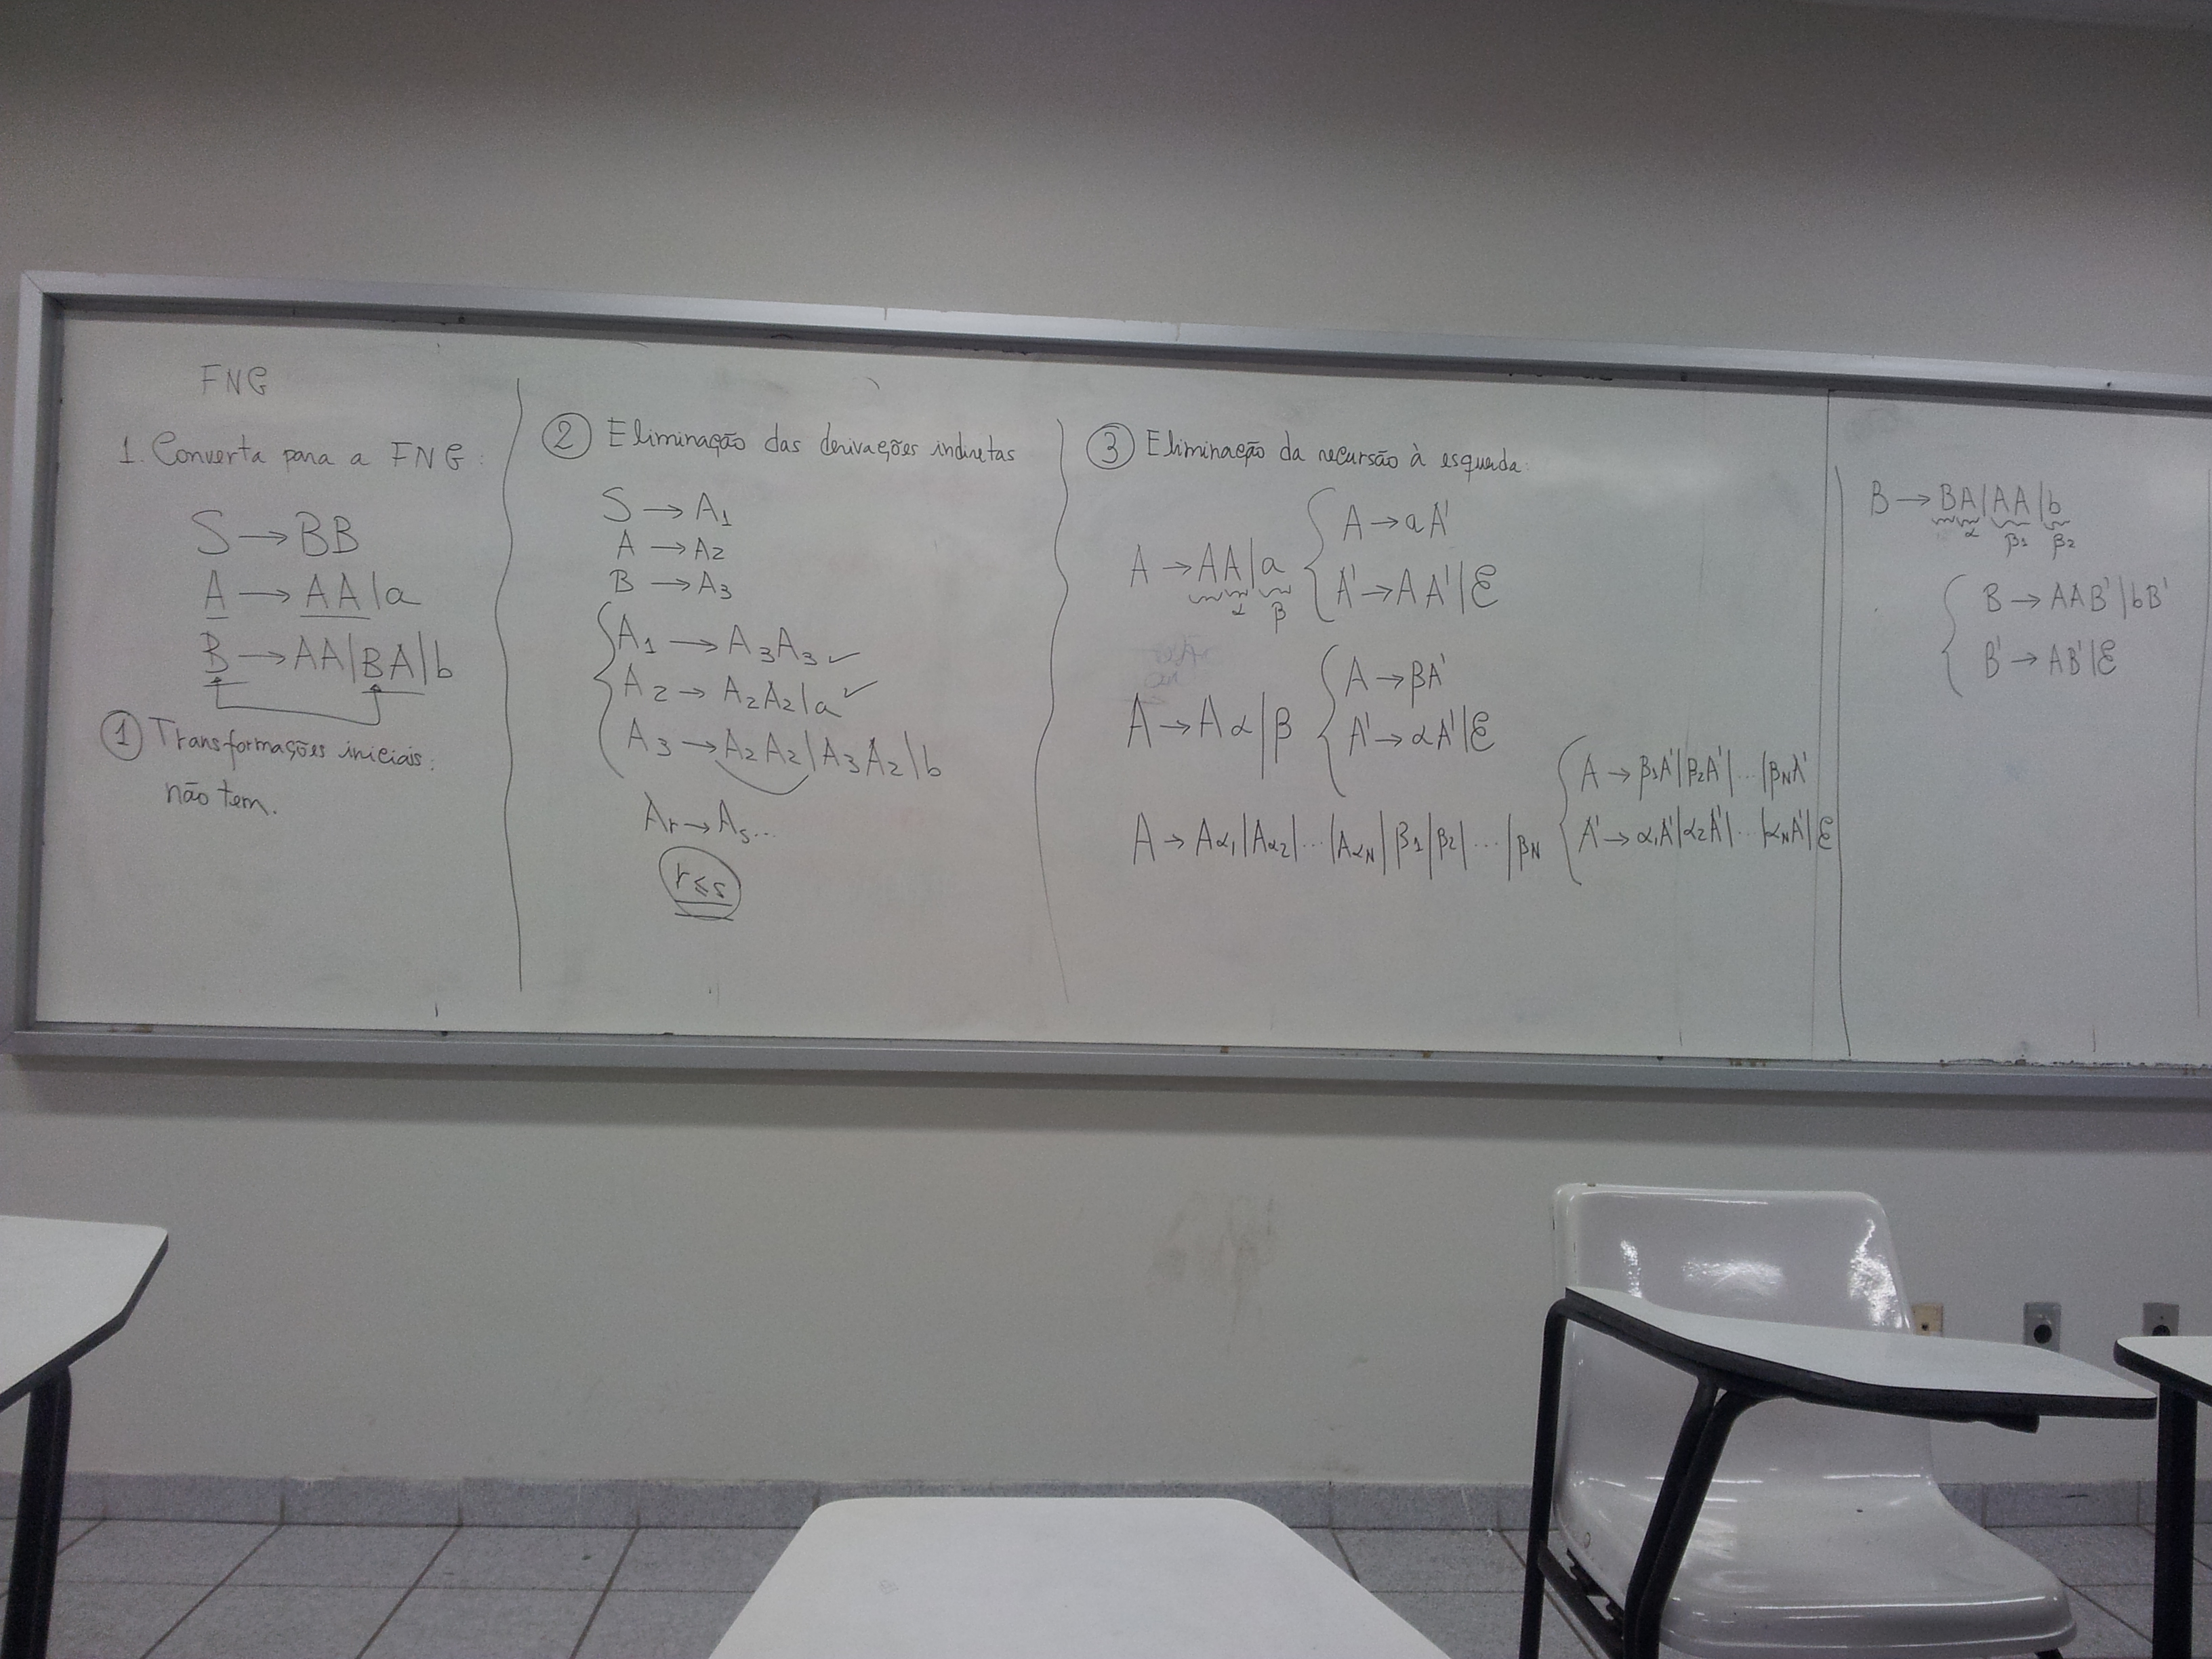 FNG
1. Converta para a FNG:
S → BB
A → AA|a
B → AA|BA|b
① Transformações iniciais:
não tem.
② Eliminação das derivações indiretas
S → A₁
A → A₂
B → A₃
A₁ → A₃A₃ ✓
A₂ → A₂A₂|a ✓
A₃ → A₂A₂|A₃A₂|b
Ar → As...
r ≤ s
③ Eliminação da recursão à esquerda:
A → AA|a
α β
A → aA'
A' → AA'|ε
A → Aα|β
A → βA'
A' → αA'|ε
A → Aα₁|Aα₂|...|AαN|β₁|β₂|...|βN
A → β₁A'|β₂A'|...|βNA'
A' → α₁A'|α₂A'|...|αNA'|ε
B → BA|AA|b
α β₁ β₂
B → AAB'|bB'
B' → AB'|ε